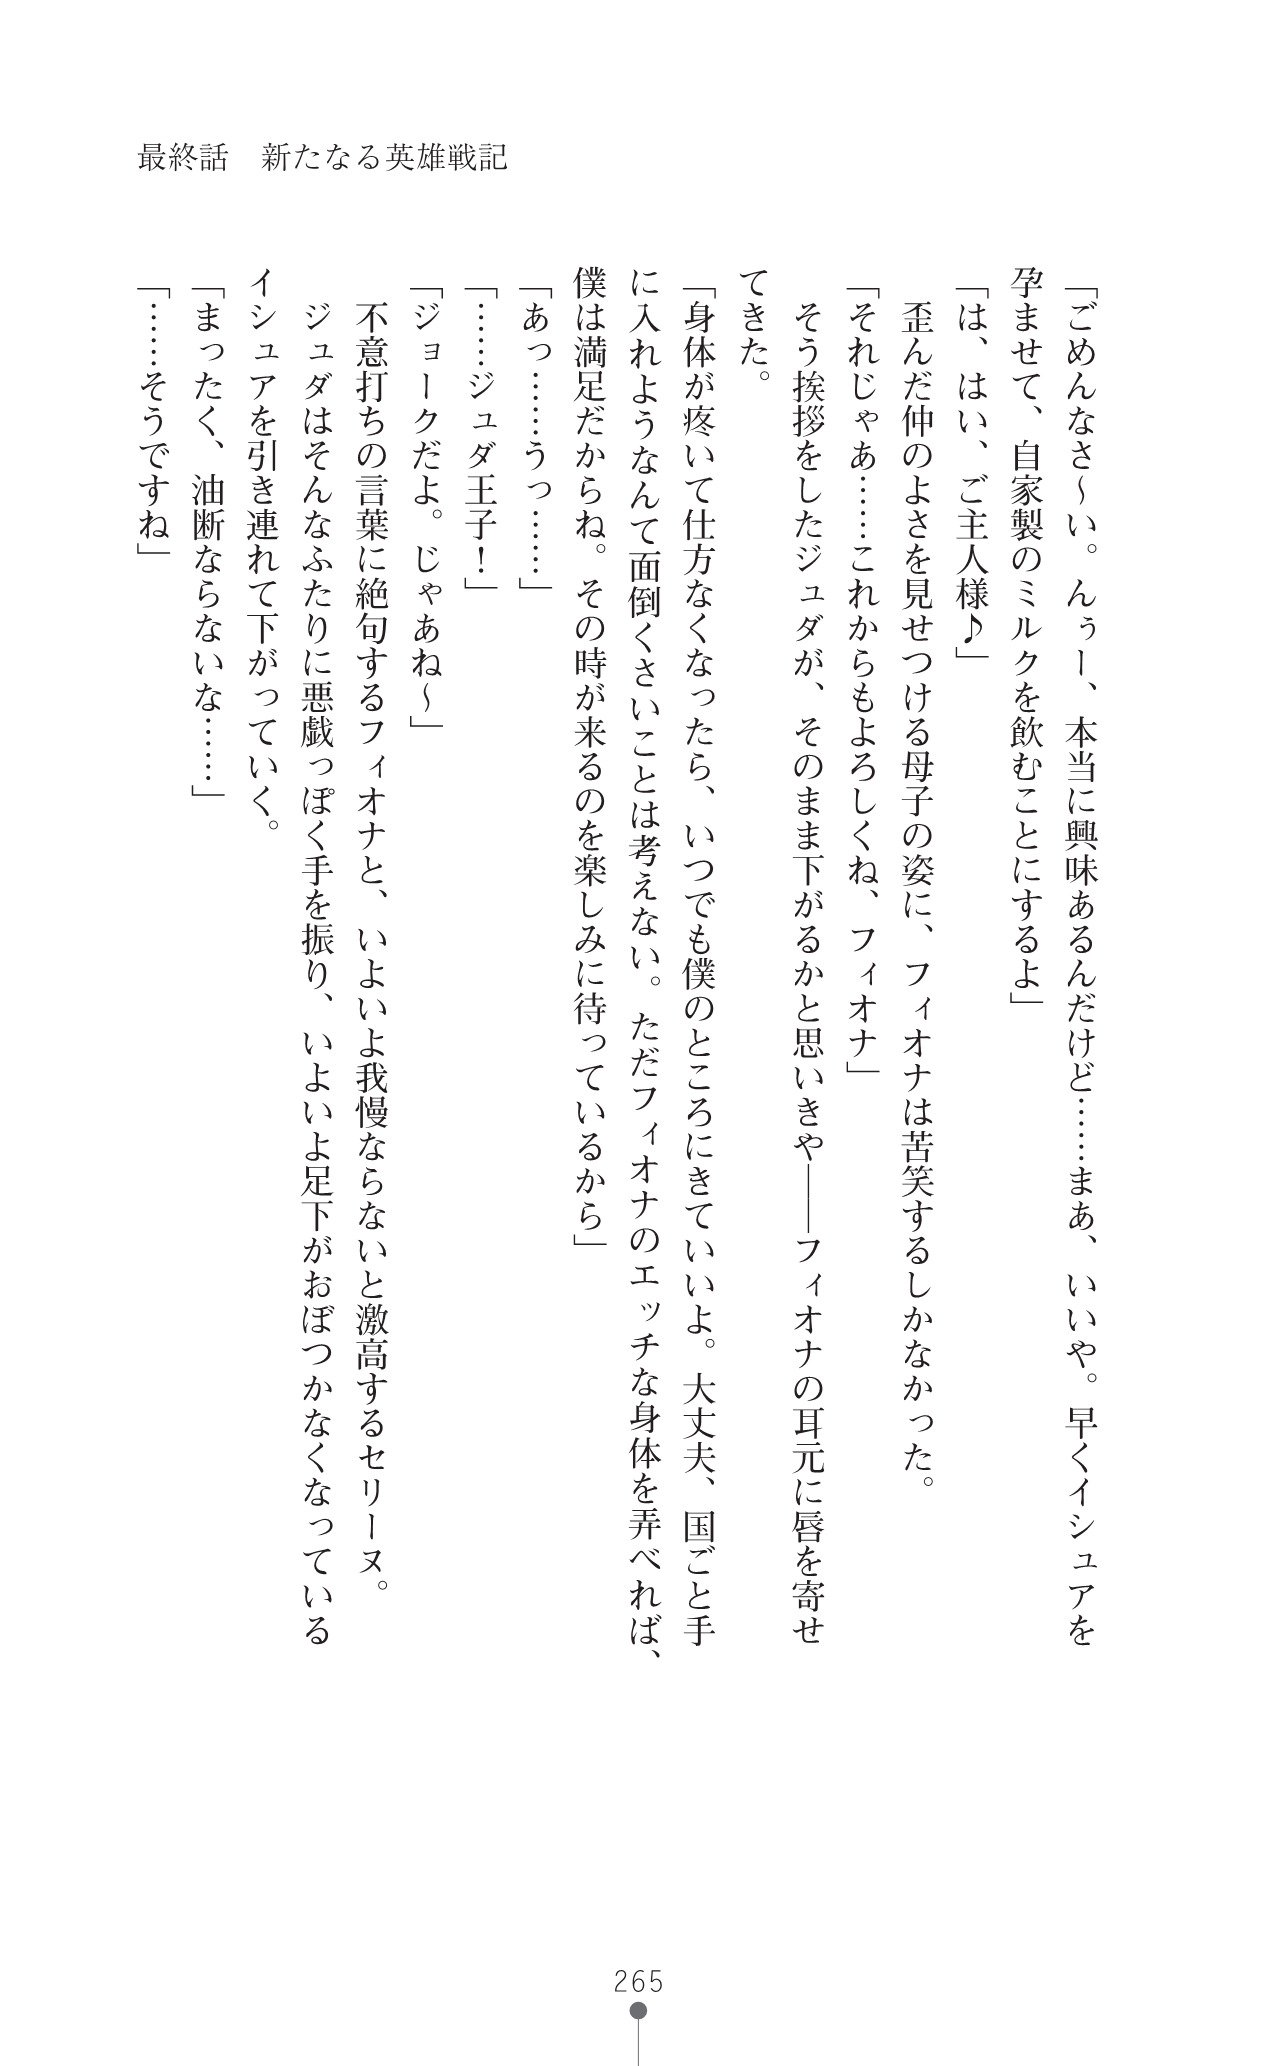 最終話　新たなる英雄戦記
「ごめんなさ～い。んぅー、本当に興味あるんだけど……まあ、いいや。早くイシュアを
孕ませて、自家製のミルクを飲むことにするよ」
「は、はい、ご主人様♪」
　歪んだ仲のよさを見せつける母子の姿に、フィオナは苦笑するしかなかった。
「それじゃあ……これからもよろしくね、フィオナ」
　そう挨拶をしたジュダが、そのまま下がるかと思いきや――フィオナの耳元に唇を寄せ
てきた。
「身体が疼いて仕方なくなったら、いつでも僕のところにきていいよ。大丈夫、国ごと手
に入れようなんて面倒くさいことは考えない。ただフィオナのエッチな身体を弄べれば、
僕は満足だからね。その時が来るのを楽しみに待っているから」
「あっ……うっ……」
「……ジュダ王子！」
「ジョークだよ。じゃあね～」
　不意打ちの言葉に絶句するフィオナと、いよいよ我慢ならないと激高するセリーヌ。
　ジュダはそんなふたりに悪戯っぽく手を振り、いよいよ足下がおぼつかなくなっている
イシュアを引き連れて下がっていく。
「まったく、油断ならないな……」
「……そうですね」
265